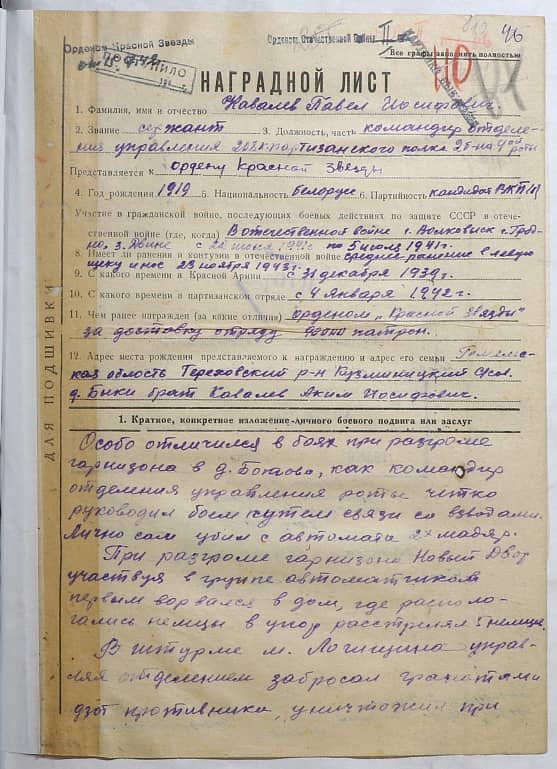 Орденом Красной Звезды
Орденом Отечественной Войны II
46
Все графы заполнить полностью
НАГРАДНОЙ ЛИСТ
1. Фамилия, имя и отчество Ковалев Павел Иосифович
2. Звание сержант 3. Должность, часть командир отделе-
ния управления партизанского полка роты
Представляется к ордену Красной звезды
4. Год рождения 1919 5. Национальность Белорус 6. Партийность кандидат ВКП(б)
Участие в гражданской войне, последующих боевых действиях по защите СССР в отече-
ственной войне (где, когда) В отечественной войне г. Волковыск г. Грод-
но, з. Двине с 22 июня 1941г по 5 июля 1941г.
8. Имеет ли ранения и контузии в отечественной войне среднее ранение в левую
щеку и нос 23 ноября 1943г.
9. С какого времени в Красной Армии с 31 декабря 1939г.
10. С какого времени в партизанском отряде с 4 января 1942г.
11. Чем ранее награжден (за какие отличия) орденом „Красной звезды"
за доставку отряду патрон.
12. Адрес места рождения представляемого к награждению и адрес его семьи Гомельс-
кая область Тереховский р-н Кузминицкий
д. брат Ковалев Аким Иосифович.
ДЛЯ ПОДШИВКИ
1. Краткое, конкретное изложение личного боевого подвига или заслуг
Особо отличился в боях при разгроме
гарнизона в д. как командир
отделения управления роты четко
руководил боем путем связи со взводами.
Лично сам убил с автомата 2х мадяр.
При разгроме гарнизона Новый Двор
участвуя в группе автоматчиком
первым ворвался в дом, где распола-
гались немцы в упор расстрелял немцев.
В штурме м. Логишина управ-
ляя отделением забросал гранатами
дзот противника, уничтожил при